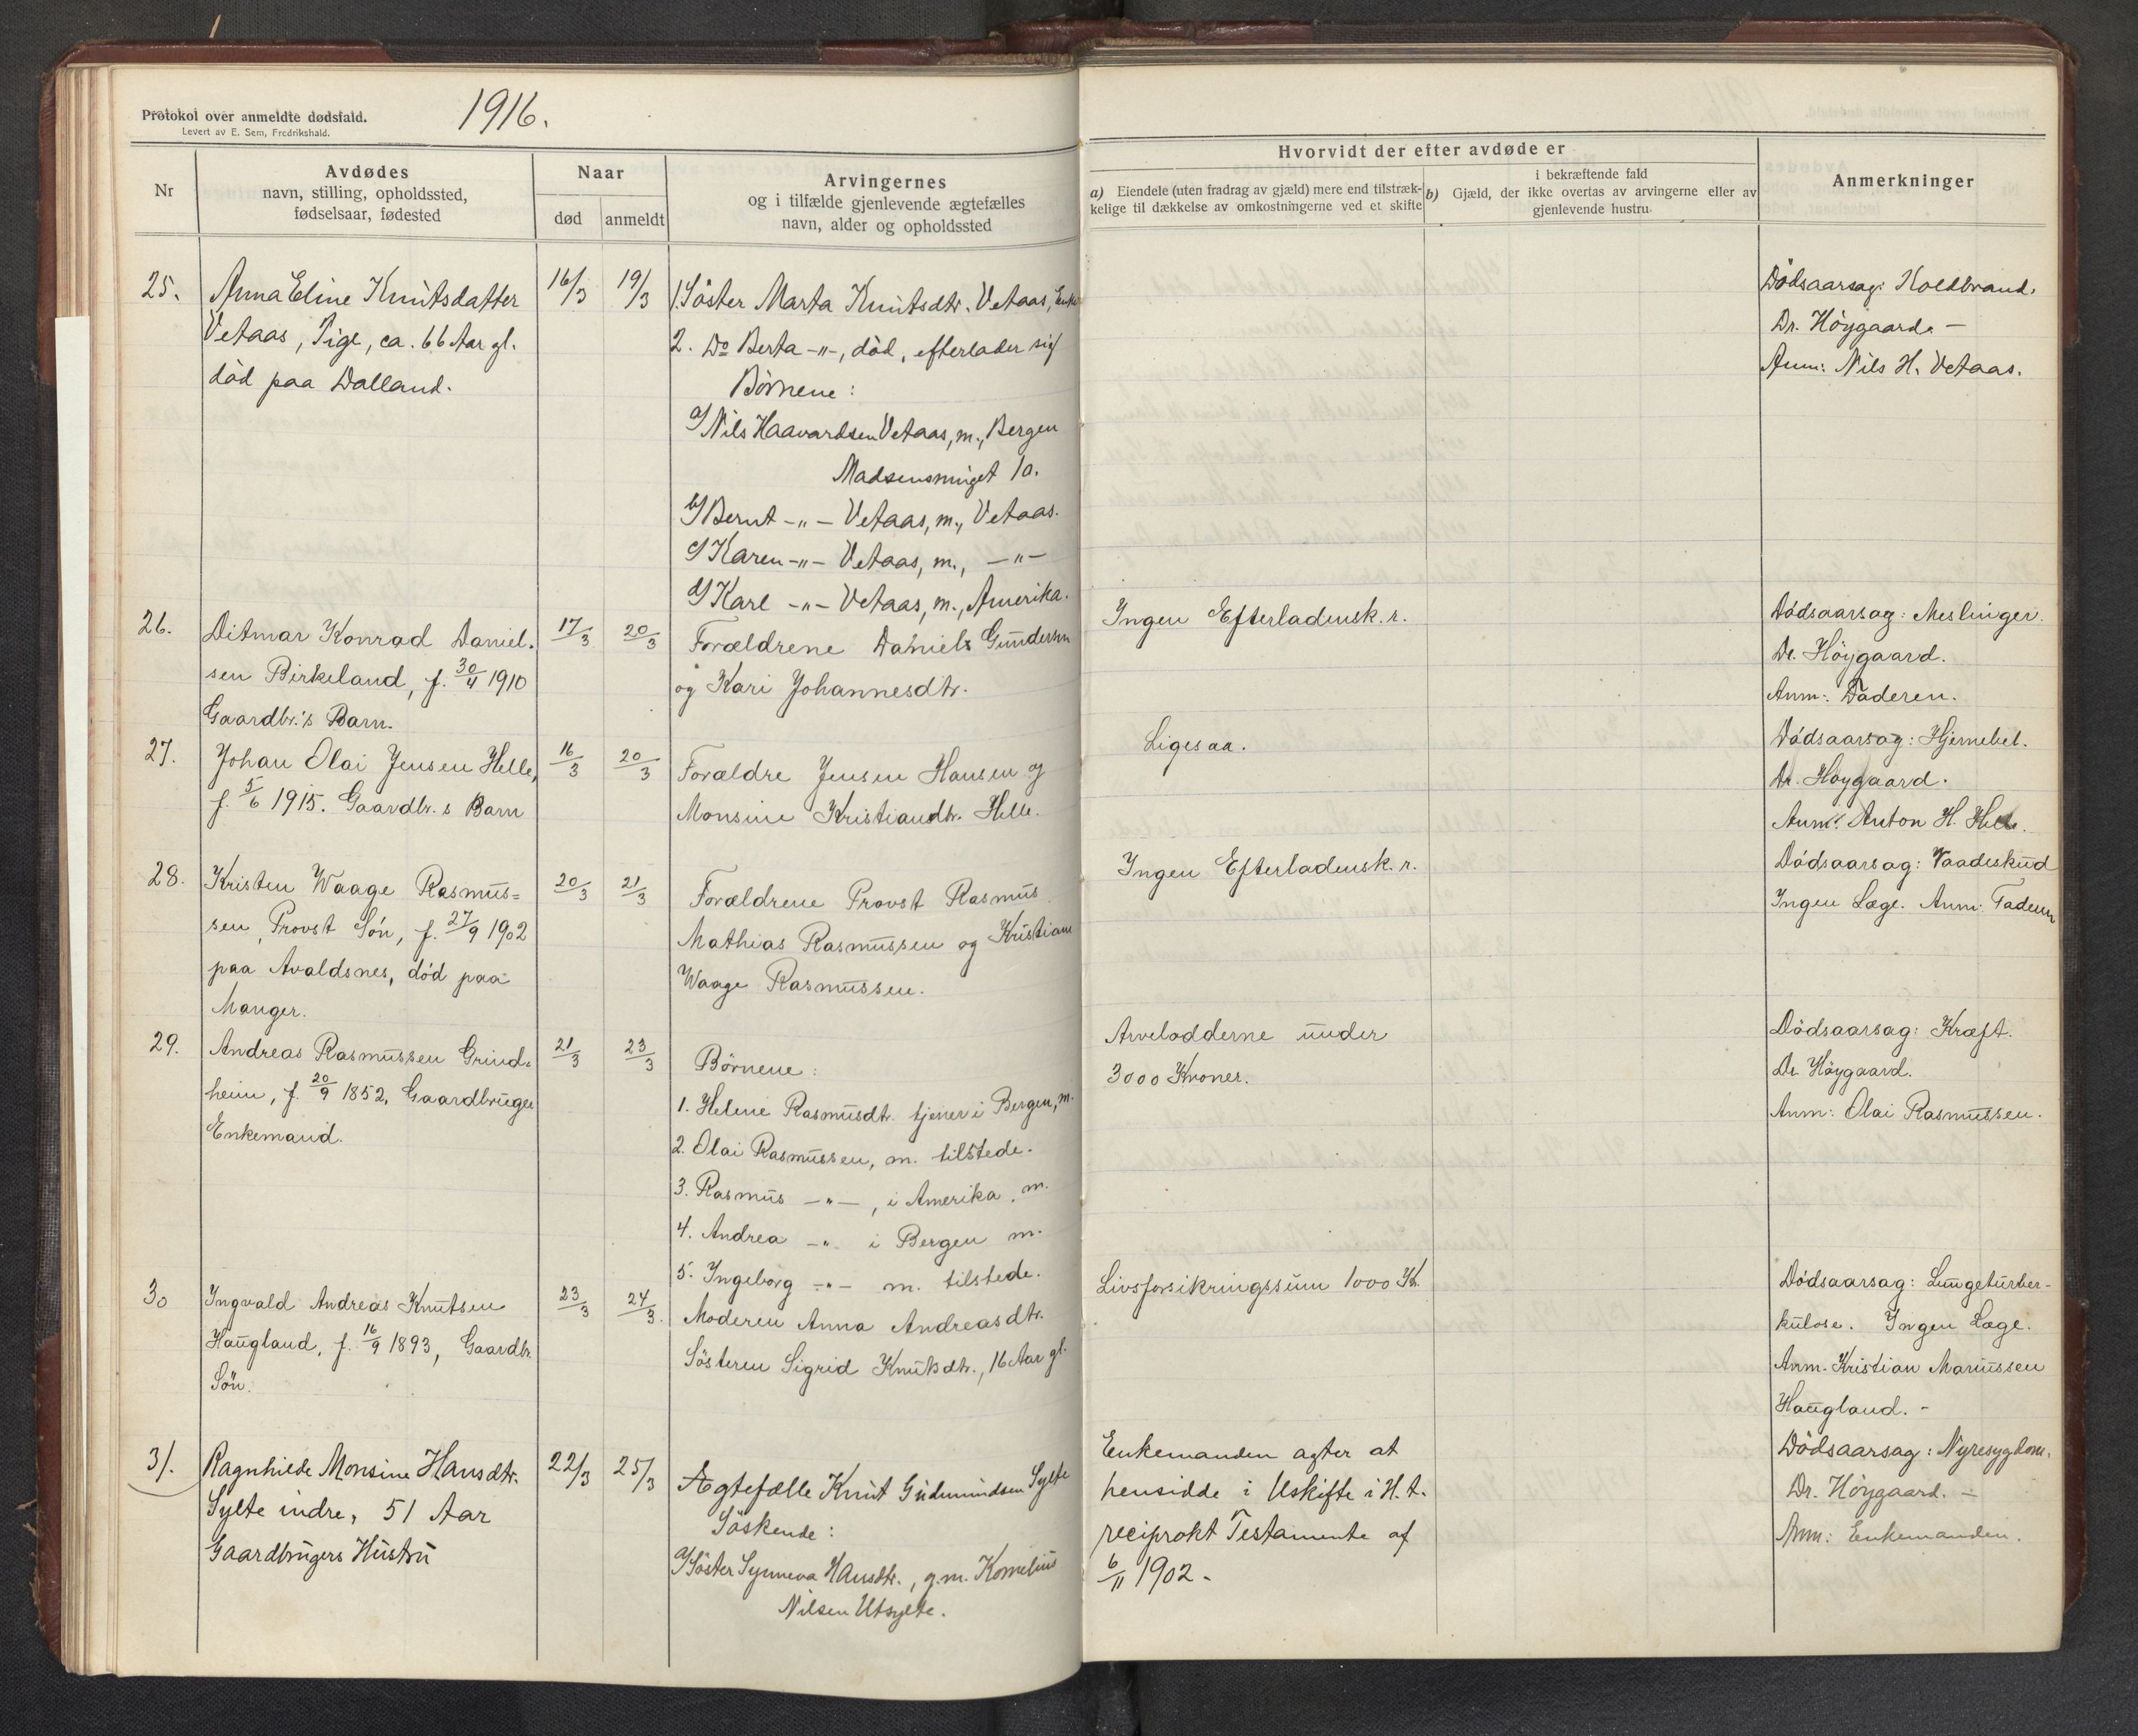 Protokol over anmeldte dødsfald.
Levert av E. Sem, Fredrikshald.
1916.
Nr
Avdødes
navn, stilling, opholdssted,
fødselsaar, fødested
Naar
død
anmeldt
Arvingernes
og i tilfælde gjenlevende ægtefælles
navn, alder og opholdssted
Hvorvidt der efter avdøde er
a) Eiendele (uten fradrag av gjæld) mere end tilstræk-
kelige til dækkelse av omkostningerne ved et skifte
i bekræftende fald
b) Gjæld, der ikke overtas av arvingerne eller av
gjenlevende hustru
Anmerkninger
25.
Anna Eline Knutsdatter
Vetaas, Pige, ca. 66 Aar gl.
död paa Dalland.
16/3
19/3
1. Söster Marta Knutsdtr. Vetaas, Enke
2. Do Berta -"-, död, efterlader sig
Börnene:
a/ Nils Haavardsen Vetaas, m., Bergen
Madsensmuget 1a.
b/ Bernt -"- Vetaas, m., Vetaas.
c/ Karen -"- Vetaas, m., -"-
d/ Karl -"- Vetaas, m., Amerika.
Dödsaarsag: Koldbrand.
Dr. Höygaard. -
Anm: Nils H. Vetaas.
26.
Ditmar Konrad Daniel-
sen Birkeland, f. 30/4 1910
Gaardbr.'s Barn.
17/3
20/3
Forældrene Daniels Gundersen
og Kari Johannesdtr.
Ingen Efterladensk. r.
Dödsaarsag: Meslinger.
Dr. Höygaard.
Anm: Faderen.
27.
Johan Olai Jensen Helle,
f. 5/6 1915. Gaardbr. s Barn
16/3
20/3
Forældre Jensen Hansen og
Monsine Kristiandtr. Helle.
Ligesaa.
Dödsaarsag: Hjernebet.
Dr. Höygaard.
Anm: Anton H. Helle.
28.
Kristen Waage Rasmus=
sen, Provst Sön, f. 27/9 1902
paa Avaldsnes, död paa
Manger.
20/3
21/3
Forældrene Provst Rasmus
Mathias Rasmussen og Kristiane
Waage Rasmussen.
Ingen Efterladensk. r.
Dödsaarsag: Vaadeskud
Ingen Læge. Anm: Faderen
29.
Andreas Rasmussen Grind-
heim, f. 20/9 1852, Gaardbruger
Enkemand.
21/3
23/3
Börnene:
1. Helene Rasmusdtr. tjener i Bergen, m.
2. Olai Rasmussen, m. tilstede.
3. Rasmus -"-, i Amerika, m.
4. Andrea -"- i Bergen m.
5. Ingeborg -"- m. tilstede.
Arvelodderne under
3000 Kroner.
Dödsaarsag: Kræft.
Dr. Höygaard.
Anm: Olai Rasmussen.
30
Ingvald Andreas Knutsen
Haugland, f. 16/9 1893, Gaardbr.
Sön.
23/3
24/3.
Moderen Anna Andreasdtr.
Sösteren Sigrid Knutsdtr., 16 Aar gl.
Livsforsikringssum 1000 Kr.
Dödsaarsag: Lungeturber-
kulose. Ingen Læge.
Anm. Kristian Mariussen
Haugland. -
31.
Ragnhilde Monsine Hansdtr.
Sylte indre, 51 Aar
Gaardbrugers Hustru
22/3
25/3
Ægtefælle Knut Gudmundsen Sylte
Söskende:
a/ Söster Synneva Hansdtr., g.m. Kornelius
Nilsen Utsylte.
Enkemanden agter at
hensidde i Uskifte i H. t.
reciprokt Testamente af
6/11 1902 -
Dödsaarsag: Nyresygdom.
Dr. Höygaard. -
Anm: Enkemanden.